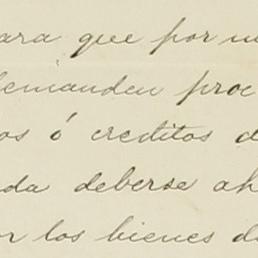 ara que por m
demanden proc
os ó creditos d
da deberse ah
or los bienes d